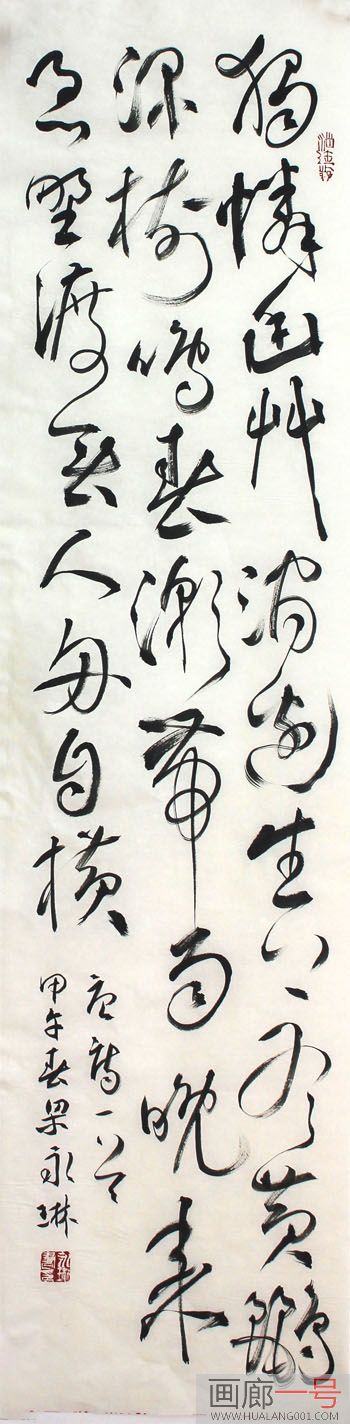 獨憐幽艸澗邊生上有黄鸝
深樹鳴春潮帶雨晚来
急野渡無人舟自横
唐詩一首
甲午春梁永琳
画廊一号
WWW.HUALANG001.COM